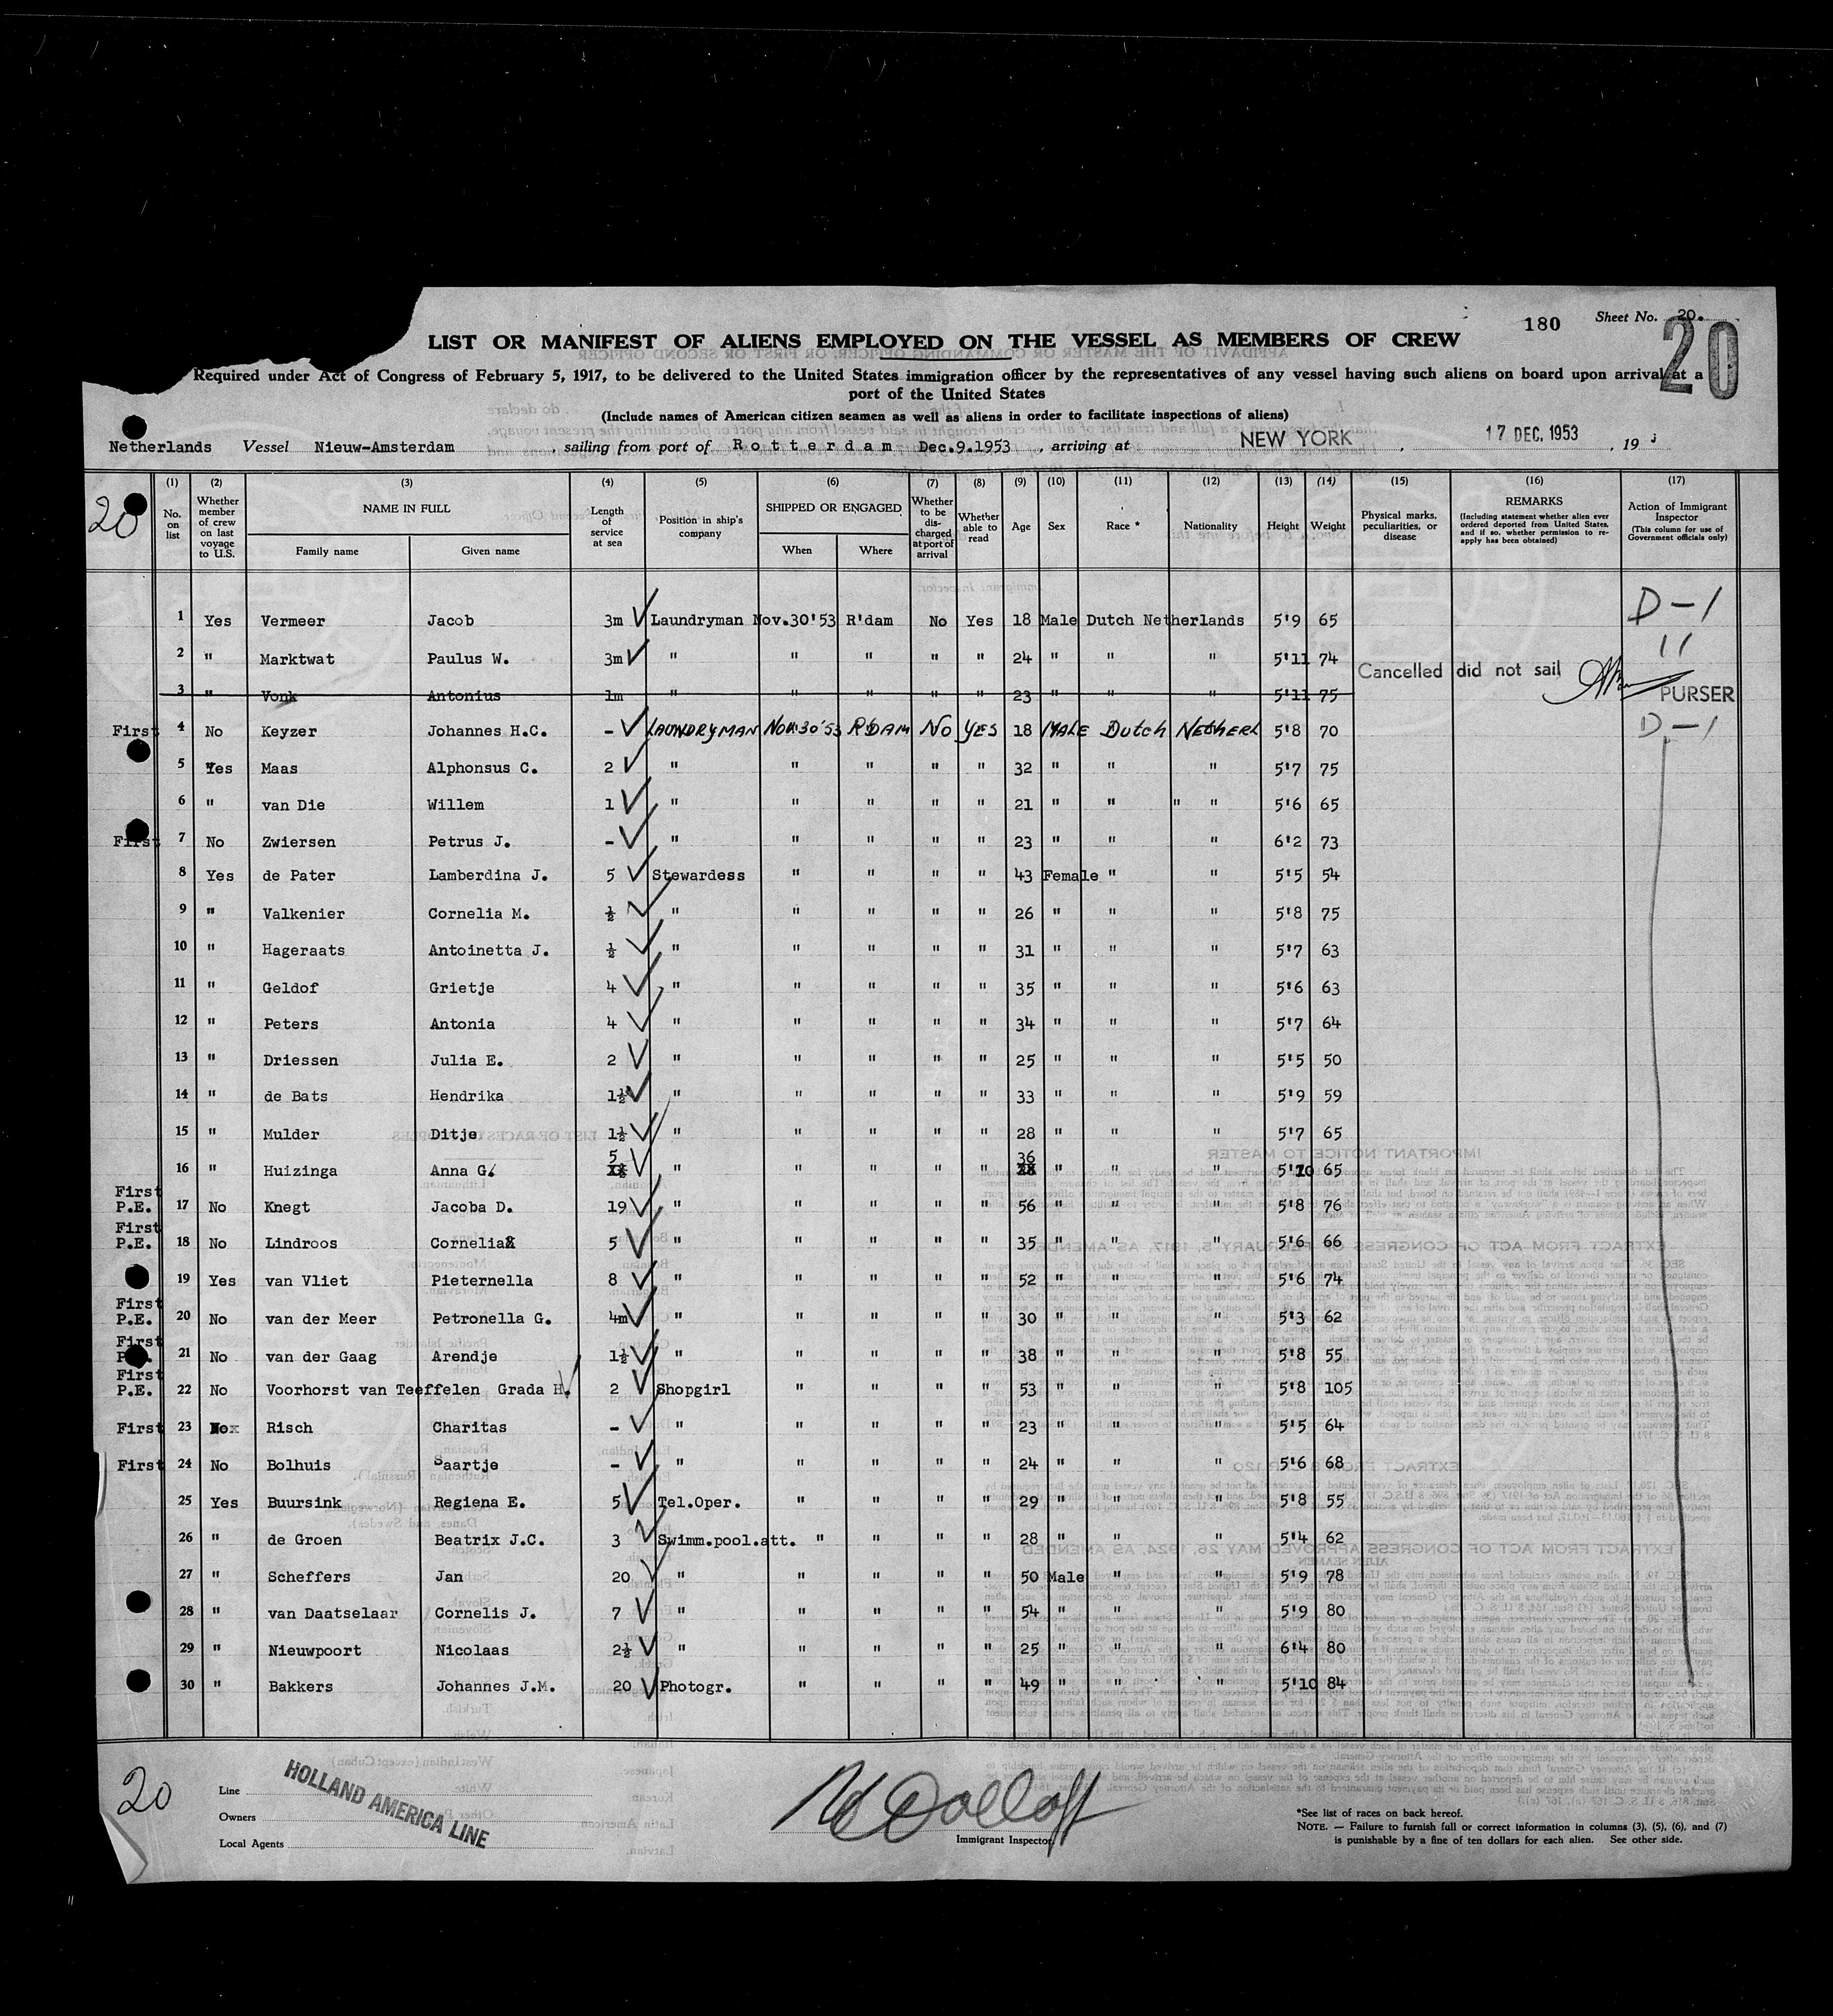 180
Sheet No. 20.
20
LIST OR MANIFEST OF ALIENS EMPLOYED ON THE VESSEL AS MEMBERS OF CREW
Required under Act of Congress of February 5, 1917, to be delivered to the United States immigration officer by the representatives of any vessel having such aliens on board upon arrival at a
port of the United States
(Include names of American citizen seamen as well as aliens in order to facilitate inspections of aliens)
Netherlands Vessel Nieuw-Amsterdam , sailing from port of Rotterdam Dec.9.1953 , arriving at NEW YORK , 17 DEC. 1953 , 19 3
20
(1) No. on list
(2) Whether member of crew on last voyage to U.S.
(3) NAME IN FULL Family name Given name
(4) Length of service at sea
(5) Position in ship's company
(6) SHIPPED OR ENGAGED When Where
(7) Whether to be discharged at port of arrival
(8) Whether able to read
(9) Age
(10) Sex
(11) Race *
(12) Nationality
(13) Height
(14) Weight
(15) Physical marks, peculiarities, or disease
(16) REMARKS (Including statement whether alien ever ordered deported from United States, and if so, whether permission to re-apply has been obtained)
(17) Action of Immigrant Inspector (This column for use of Government officials only)
1 Yes Vermeer Jacob 3m Laundryman Nov.30'53 R'dam No Yes 18 Male Dutch Netherlands 5'9 65 D-1
2 " Marktwat Paulus W. 3m " " " " " 24 " " " 5'11 74 "
Cancelled did not sail
3 " Vonk Antonius 1m " " " " " 23 " " " 5'11 75 PURSER
First 4 No Keyzer Johannes H.C. - LAUNDRYMAN Nov.30'53 R'DAM No YES 18 MALE Dutch NETHERL 5'8 70 D-1
5 Yes Maas Alphonsus C. 2 " " " " " 32 " " " 5'7 75
6 " van Die Willem 1 " " " " " 21 " " " " 5'6 65
First 7 No Zwiersen Petrus J. - " " " " " 23 " " " 6'2 73
8 Yes de Pater Lamberdina J. 5 Stewardess " " " " 43 Female " " 5'5 54
9 " Valkenier Cornelia M. ½ " " " " " 26 " " " 5'8 75
10 " Hageraats Antoinetta J. ½ " " " " " 31 " " " 5'7 63
11 " Geldof Grietje 4 " " " " " 35 " " " 5'6 63
12 " Peters Antonia 4 " " " " " 34 " " " 5'7 64
13 " Driessen Julia E. 2 " " " " " 25 " " " 5'5 50
14 " de Bats Hendrika 1½ " " " " " 33 " " " 5'9 59
15 " Mulder Ditje 1½ " " " " " 28 " " " 5'7 65
16 " Huizinga Anna G. 5 " " " " " 36 " " " 5'10 65
First P.E. 17 No Knegt Jacoba D. 19 " " " " " 56 " " " 5'8 76
First P.E. 18 No Lindroos Cornelia 5 " " " " " 35 " " " 5'6 66
19 Yes van Vliet Pieternella 8 " " " " " 52 " " " 5'6 74
First P.E. 20 No van der Meer Petronella G. 4m " " " " " 30 " " " 5'3 62
First 21 No van der Gaag Arendje 1½ " " " " " 38 " " " 5'8 55
First P.E. 22 No Voorhorst van Teeffelen Grada H. 2 Shopgirl " " " " 53 " " " 5'8 105
First 23 No Risch Charitas - " " " " " 23 " " " 5'5 64
First 24 No Bolhuis Saartje - " " " " " 24 " " " 5'6 68
25 Yes Buursink Regiena E. 5 Tel.Oper. " " " " 29 " " " 5'8 55
26 " de Groen Beatrix J.C. 3 Swimm.pool.att. " " " " 28 " " " 5'4 62
27 " Scheffers Jan 20 " " " " " 50 Male " " 5'9 78
28 " van Daatselaar Cornelis J. 7 " " " " " 54 " " " 5'9 80
29 " Nieuwpoort Nicolaas 2½ " " " " " 25 " " " 6'4 80
30 " Bakkers Johannes J.M. 20 Photogr. " " " " 49 " " " 5'10 84
20
Line
Owners
Local Agents
HOLLAND AMERICA LINE
Immigrant Inspector
*See list of races on back hereof.
NOTE. — Failure to furnish full or correct information in columns (3), (5), (6), and (7)
is punishable by a fine of ten dollars for each alien. See other side.